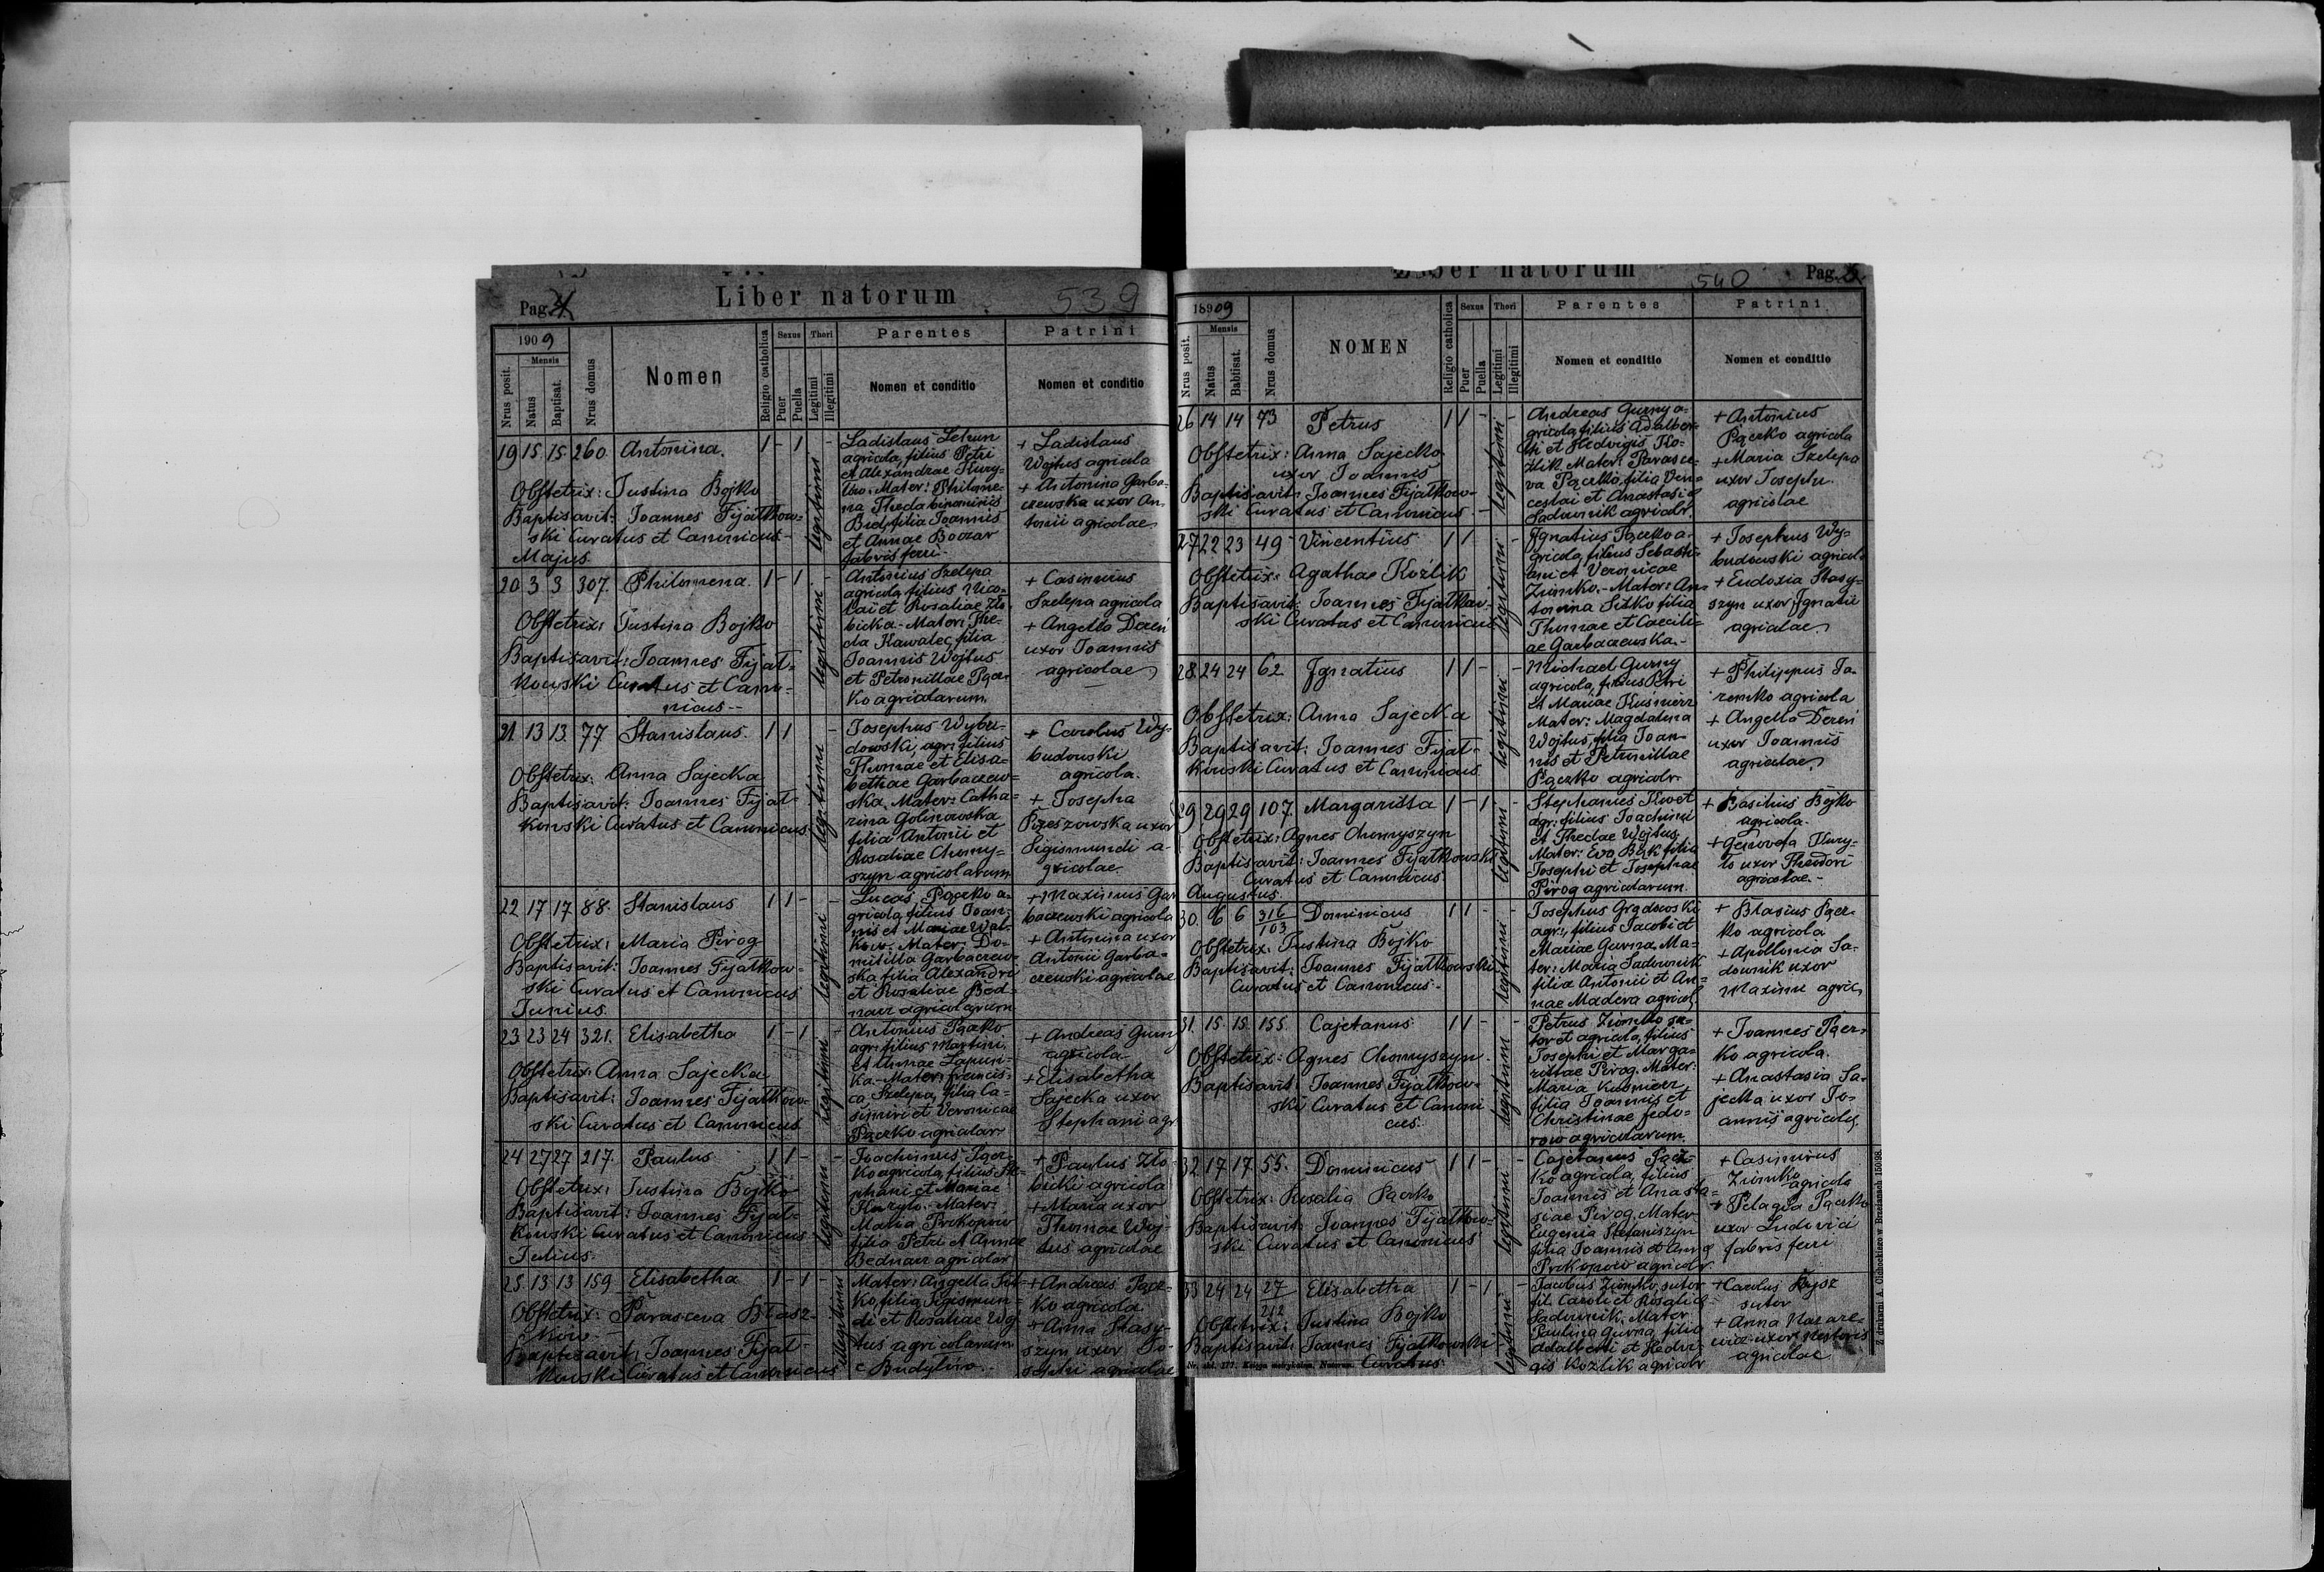 Pag. 4
Liber natorum
539
1909
Mensis
Nrus posit.
Natus
Baptisat.
Nrus domus
Nomen
Religio catholica
Sexus
Puer
Puella
Thori
Legitimi
Illegitimi
Parentes
Nomen et conditio
Patrini
Nomen et conditio
19 15 15 260 Antonina. 1 - 1 -
Obstetrix: Justina Bojko
Baptisavit: Joannes Fijałkow-
ski Curatus et Canonicus-
Majus.
legitimi
Ladislaus
agricola, filius Petri
et Alexandrae Kury-
Mater: Philome-
na Theda binominis
filia Joannis
et Annae Boczar
fabris ferri-
+ Ladislaus
Wojtus agricola
+ Antonina Garba-
czewska uxor An-
tonii agricolae
20 3 3 307. Philomena. 1 - 1 -
Obstetrix: Justina Bojko
Baptisavit: Joannes Fijał-
kowski Curatus et Cano-
nicus--
legitimi
Antonius Szelepa
agricola, filius Nico-
lai et Rosaliae Zło-
bicka - Mater: The-
cla Kawalec, filia
Joannis Wojtus
et Petronillae Pącz-
ko agricolarum.
+ Casimirus
Szelepa agricola
+ Angella Dereń
uxor Joannis
agricolae
21. 13 13. 77 Stanislaus. 1 1 -
Obstetrix: Anna Sajecka
Baptisavit: Joannes Fijał-
kowski Curatus et Canonicus
legitimi
Josephus Wybu-
dowski, agr: filius
Thomae et Elisa-
bethae Garbaczew-
ska. Mater: Catha-
rina Golinowska
filia Antonii et
Rosaliae Chomy-
szyn agricolarum
+ Carolus Wy-
budowski
agricola.
+ Josepha
Rzeszowska uxor
Sigismundi a-
gricolae.
22 17 17 88. Stanislaus 1 1 - -
Obstetrix: Maria Pirog
Baptisavit: Joannes Fijałkow-
ski Curatus et Canonicus
Junius.
legitimi
Lucas Pączko a-
gricola, filius Joan-
nis et Mariae Wal-
kow. Mater: Do-
mitilla Garbaczew-
ska filia Alexandri
et Rosaliae Bed-
narz agricolarum
+ Maximus Gar-
baczewski agricola
+ Antonina uxor
Antonii Garba-
czewski agricolae
23 23 24 321. Elisabetha 1 - 1 -
Obstetrix: Anna Sajecka
Baptisavit: Joannes Fijałkow-
ski Curatus et Canonicus.
legitimi
Antonius Pączko
agr: filius Martini
et Annae Łapuni-
ka.- Mater: Francis-
ca Szelepa, filia Ca-
simiri et Veronicae
Pączko agricolar
+ Andreas Gurny
agricola
+ Elisabetha
Sajecka uxor
Stephani agr.
24 27 27 217. Paulus 1 1 - -
Obstetrix: Justina Bojko
Baptisavit: Joannes Fijał-
kowski Curatus et Canonicus
Julius.
legitimi
Joachimus Pącz-
ko agricola, filius Ste-
phani et Mariae
Kuryło.- Mater:
Maria Prokopow
filia Petri et Annae
Bednarz agricolar
+ Paulus Zło-
bicki agricola
+ Maria uxor
Thomae Woj-
tus agricolae
25. 13 13 159 Elisabetha 1 - 1 -
Obstetrix: Parasceva Błasz-
kow-
Baptisavit: Joannes Fijał-
kowski Curatus et Canonicus
illegitimi
Mater: Angella
ko, filia Sigismun-
di et Rosaliae Woj-
tus agricolarum
e Budyłow.
+ Andreas Pącz-
ko agricola
+ Anna Stasy-
szyn uxor Jo-
sephi agricolae
Liber natorum
540
Pag. 5.
18909
Mensis
Nrus posit.
Natus
Babtisat.
Nrus domus
NOMEN
Religio catholica
Sexus
Puer
Puella
Thori
Legitimi
Illegitimi
Parentes
Nomen et conditio
Patrini
Nomen et conditio
26 14 14 73 Petrus 1 1 - -
Obstetrix: Anna Sajecka
uxor Joannis
Baptisavit: Joannes Fijałkow-
ski Curatus et Canonicus-
legitimi
Andreas Gurny a-
gricola, filius Adalber-
ti et Hedvigis Ko-
zlik. Mater: Parasce-
va Pączko, filia Ven-
ceslai et Anastasiae
Sadownik agricolr.
+ Antonius
Pączko agricola
+ Maria Szelepa
uxor Josephi
agricolae
27 22 23 49 Vincentius 1 1 -
Obstetrix: Agatha Kozlik
Baptisavit: Joannes Fijałkow-
ski Curatus et Canonicus
legitimi
Ignatius Pączko a-
gricola, filius Sebasti-
ani et Veronicae
Ziomko.- Mater: An-
tonina Sitko filia
Thomae et Caecili-
ae Garbaczewska.-
+ Josephus Wy-
budowski agricola
+ Eudoxia Stasy-
szyn uxor Ignatii
agricolae
28. 24 24 62 Ignatius 1 1 - -
Obstetrix: Anna Sajecka
Baptisavit: Joannes Fijał-
kowski Curatus et Canonicus.
legitimi
Michael Gurny
agricola, filius Petri
et Mariae Kuśnierz
Mater: Magdalena
Wojtus, filia Joan-
nis et Petronillae
Pączko agricolr.
+ Philippus Ja-
remko agricola
+ Angella Dereń
uxor Joannis
agricolae
29 29 29 107. Margaritta 1 - 1 -
Obstetrix: Agnes Chomyszyn
Baptisavit: Joannes Fijałkowski
Curatus et Canonicus.
Augustus.
legitimi
Stephanus Kwet
agr: filius Joachimi
et Theclae Wojtus
Mater: Eva Bąk filia
Josephi et Josephae
Pirog agricolarum.
+ Basilius Bojko
agricola.
+ Genovefa Kury-
ło uxor Theodori
agricolae.-
30. 6 6 316/103 Dominicus 1 1 - -
Obstetrix: Justina Bojko
Baptisavit: Joannes Fijałkowski
Curatus et Canonicus.
legitimi
Josephus Grądowski
agr:, filius Jacobi et
Mariae Gurna, Ma-
ter: Maria Sadownik
filia Antonii et An-
nae Madera agricol.
+ Blasius Pącz-
ko agricola
+ Apollonia Sa-
downik uxor
Maximi agric.
31. 15. 15. 155. Cajetanus 1 1 - -
Obstetrix: Agnes Chomyszyn
Baptisavit: Joannes Fijałkow-
ski Curatus et Canoni
cus.
legitimi
Petrus Ziomko su-
tor et agricola, filius
Josephi et Marga-
rittae Pirog. Mater:
Maria Kuśnierz
filia Joannis et
Christinae Fedo-
row agricolarum.
+ Joannes Pącz-
ko agricola.
+ Anastasia Sa-
jecka uxor Jo-
annis agricolae
32 17 17. 55. Dominicus 1 1 - -
Obstetrix: Rosalia Pączko
Baptisavit: Joannes Fijałkow-
ski Curatus et Canonicus
legitimi
Cajetanus Pącz-
ko agricola, filius
Joannis et Anasta-
siae Pirog. Mater
Eugenia Stefaniszyn
filia Joannis et Anna
Prokopow agricolr.
+ Casimirus
Ziomko agricola
+ Pelagia Pączko
uxor Ludovici
fabris ferri
33 24 24 27/212 Elisabetha 1 - 1 -
Obstetrix: Justina Bojko
Baptisavit: Joannes Fijałkowski
Curatus
legitimi
Jacobus Ziomko, sutor
fil. Caroli et Rosaliae
Sadownik. Mater
Paulina Gurna, filia
Adalberti et Hedvi-
gis Kozlik agricolr
+ Carolus
sutor
+ Anna Nazare-
wicz uxor Nestoris
agricolae
Z drukarni A. Cichockiego w Brzeżanach 150/98.